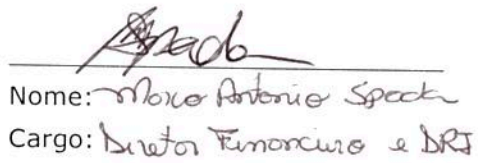 Spada
Nome: Marco Antonio Spada
Cargo: Diretor Financeiro e DRI